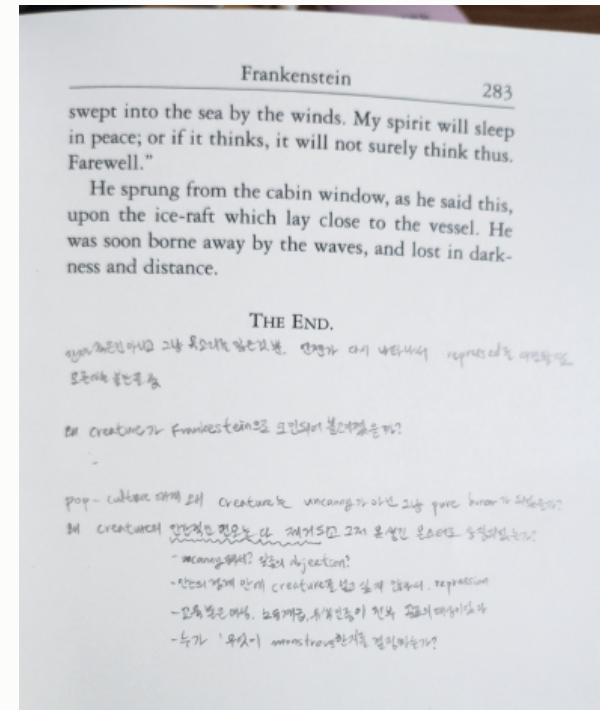 Frankenstein
283
swept into the sea by the winds. My spirit will sleep
in peace; or if it thinks, it will not surely think thus.
Farewell.”
He sprung from the cabin window, as he said this,
upon the ice-raft which lay close to the vessel. He
was soon borne away by the waves, and lost in dark-
ness and distance.
THE END.
아니고 그냥 다시 나타나서 repressed를
불안을 줌
왜 creature가 Frankestein으로 오인되어 불려졌을까?
pop-culture 대체 왜 creature는 uncanny가 아닌 그냥 pure horror가 되었을까?
왜 creature의 인간적인 면모는 다 제거되고 그저 못생긴 몬스터로
- uncanny해서? objection?
- 인간의 경계 안에 creature를 넣고 싶지 않아서. repression
- 교육받은 여성, 노동계급, 유색인종이 전부 공포의 대상이었다
- 누가 '무엇이 monstrous한지'를 결정하는가?